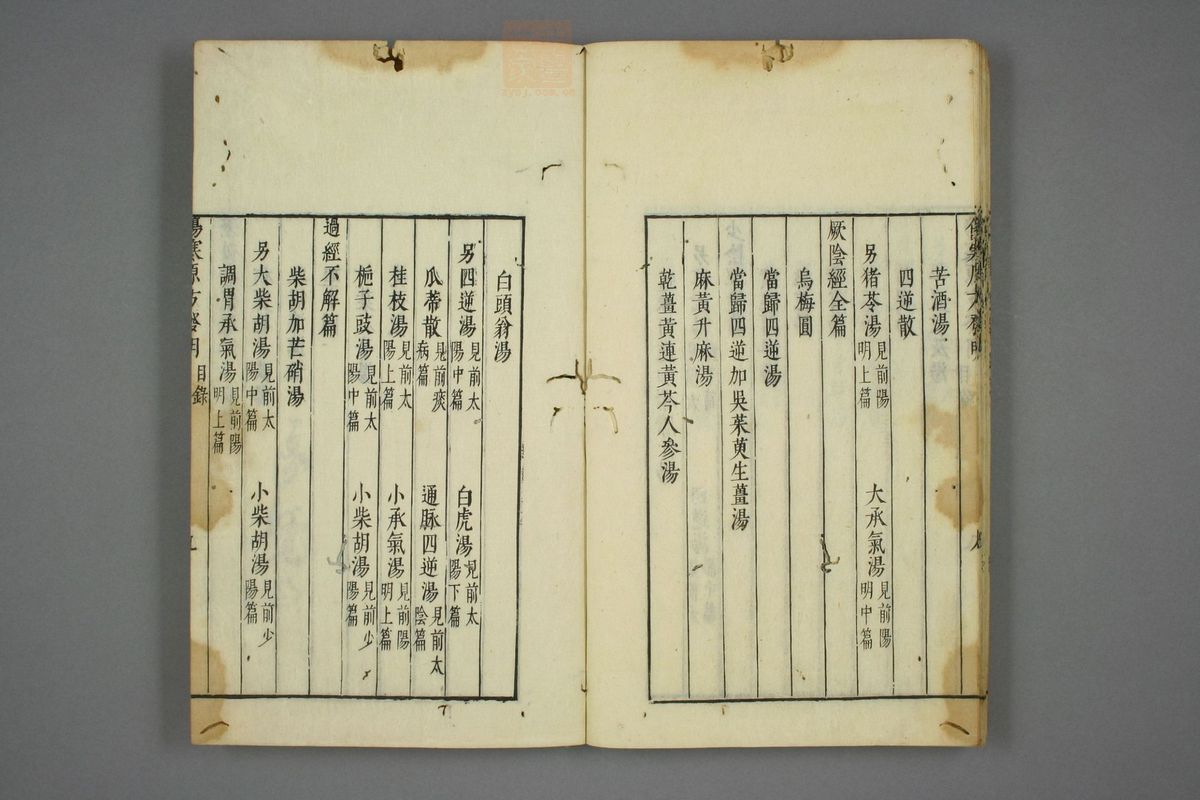 苦酒湯
四逆散
另猪苓湯 見前陽明上篇 大承氣湯 見前陽明中篇
厥陰經全篇
烏梅圓
當歸四逆湯
當歸四逆加吳茱萸生薑湯
麻黃升麻湯
乾薑黃連黃芩人參湯
白頭翁湯
另四逆湯 見前太陽中篇 白虎湯 見前太陽下篇
瓜蒂散 見前痰病篇 通脉四逆湯 見前太陰篇
桂枝湯 見前太陽上篇 小承氣湯 見前陽明上篇
梔子豉湯 見前太陽中篇 小柴胡湯 見前少陽篇
過經不解篇
柴胡加芒硝湯
另大柴胡湯 見前太陽中篇 小柴胡湯 見前少陽篇
調胃承氣湯 見前陽明上篇
傷寒源方發明 目錄